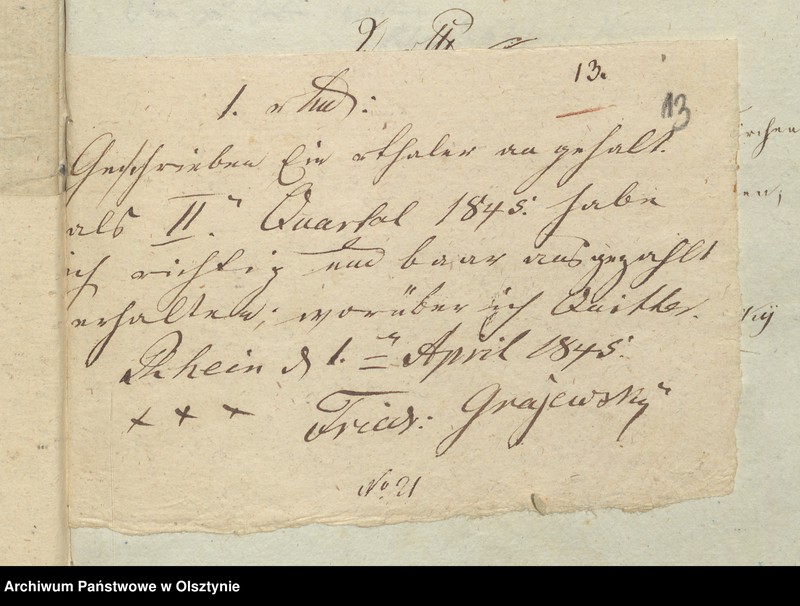 13.
13
1. rthl:
Geschrieben Ein rthaler an gehalt
als II.n Quartal 1845: habe
ich richtig und baar ausgezahlt
erhalten; worüber ich Quittire.
Rhein d 1.n April 1845:
+ + + Friedr: Grajewsky
No 21
irchen
en;
ky
Archiwum Państwowe w Olsztynie